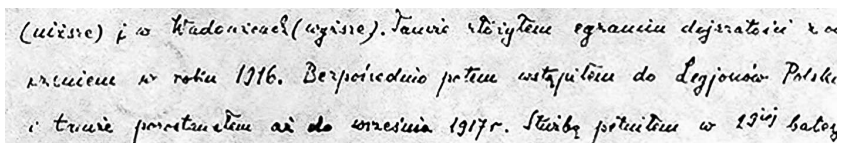 (niższe) i w Wadowicach (wyższe). Tamże złożyłem egzamin dojrzałości z o
w roku 1916. Bezpośrednio potem wstąpiłem do Legjonów Polsk
i tamże pozostałem aż do września 1917 r. Służbę pełniłem w 19tej bater